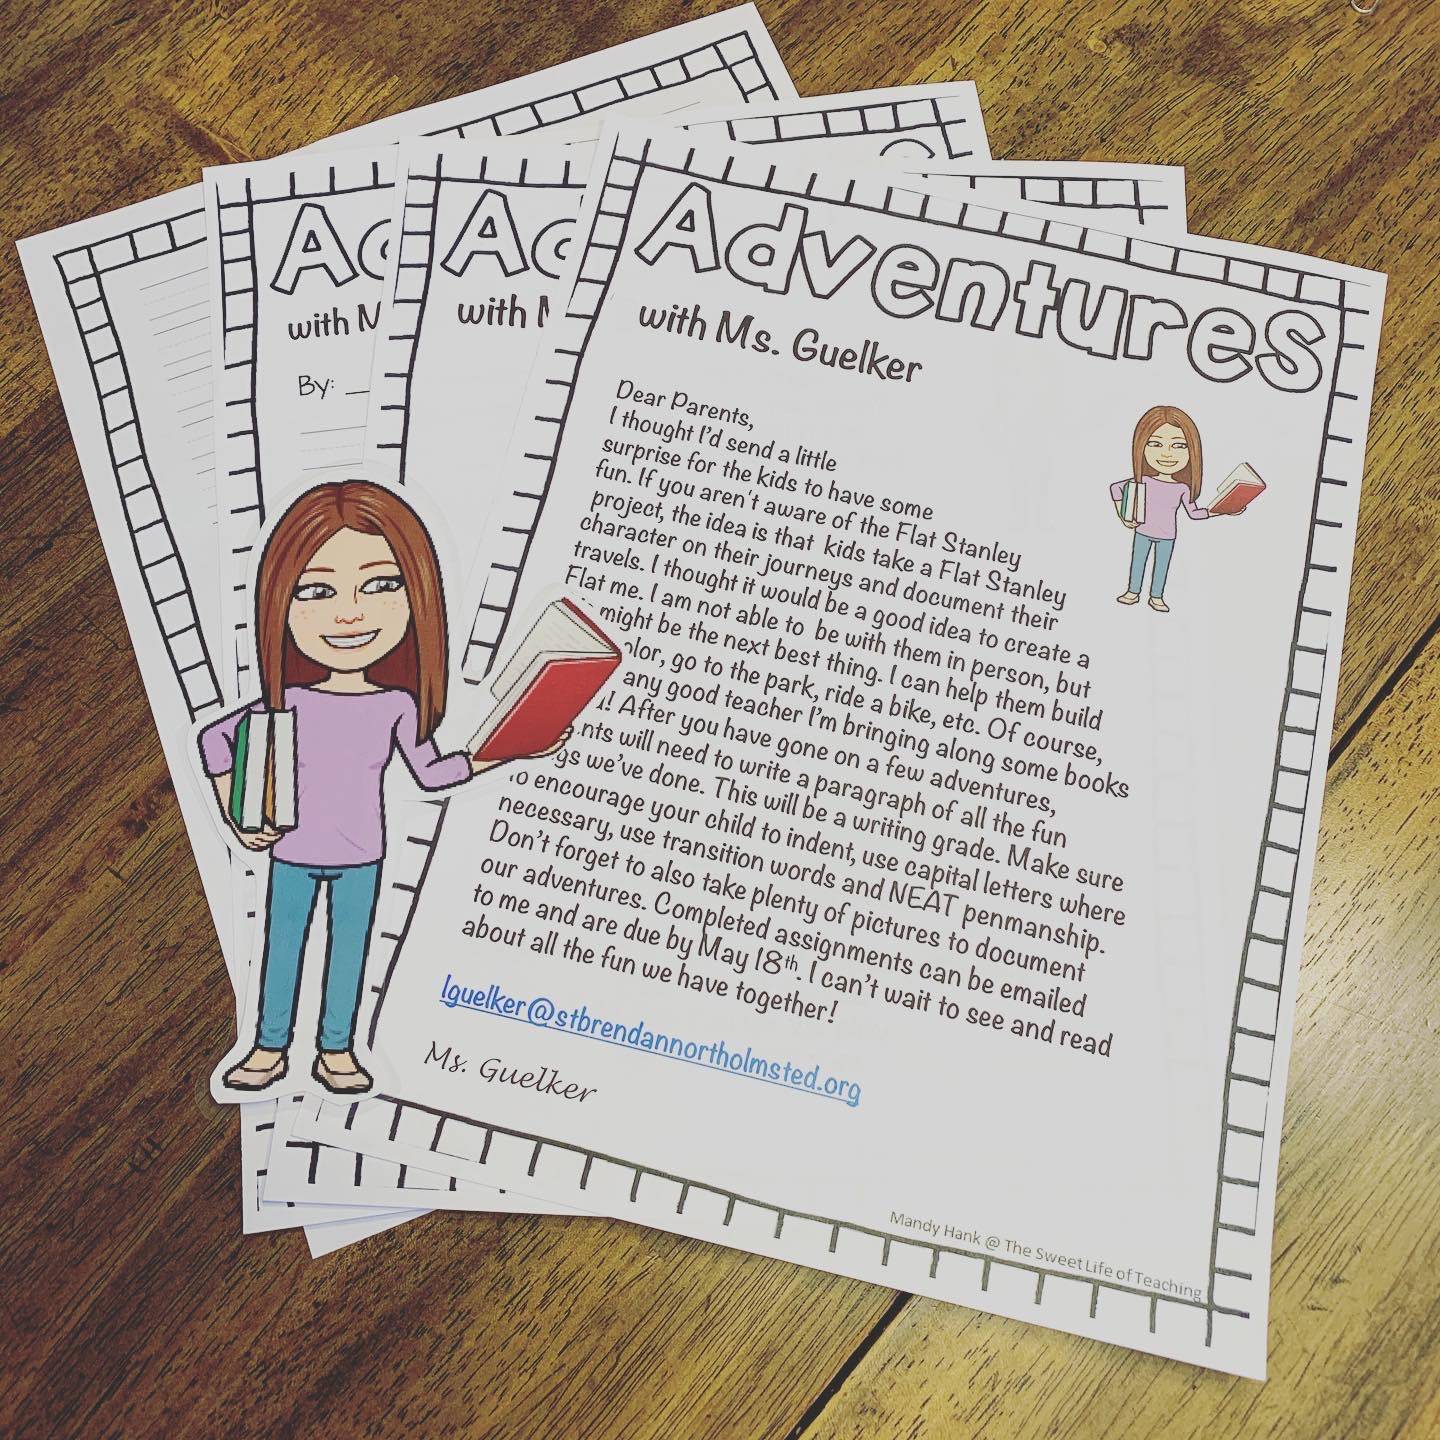 Ad
with M
By:
Ad
with M
Adventures
with Ms. Guelker
Dear Parents,
I thought I'd send a little
surprise for the kids to have some
fun. If you aren't aware of the Flat Stanley
project, the idea is that kids take a Flat Stanley
character on their journeys and document their
travels. I thought it would be a good idea to create a
Flat me. I am not able to be with them in person, but
might be the next best thing. I can help them build
color, go to the park, ride a bike, etc. Of course,
any good teacher I'm bringing along some books
! After you have gone on a few adventures,
nts will need to write a paragraph of all the fun
gs we've done. This will be a writing grade. Make sure
to encourage your child to indent, use capital letters where
necessary, use transition words and NEAT penmanship.
Don't forget to also take plenty of pictures to document
our adventures. Completed assignments can be emailed
to me and are due by May 18th. I can't wait to see and read
about all the fun we have together!
lguelker@stbrendannortholmsted.org
Ms. Guelker
Mandy Hank @ The Sweet Life of Teaching